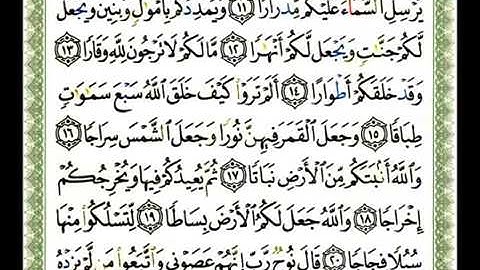 يُرْسِلِ ٱلسَّمَآءَ عَلَيْكُم مِّدْرَارًا ١١ وَيُمْدِدْكُم بِأَمْوَٰلٍ وَبَنِينَ وَيَجْعَل
لَّكُمْ جَنَّٰتٍ وَيَجْعَل لَّكُمْ أَنْهَٰرًا ١٢ مَّا لَكُمْ لَا تَرْجُونَ لِلَّهِ وَقَارًا ١٣
وَقَدْ خَلَقَكُمْ أَطْوَارًا ١٤ أَلَمْ تَرَوْا۟ كَيْفَ خَلَقَ ٱللَّهُ سَبْعَ سَمَٰوَٰتٍ
طِبَاقًا ١٥ وَجَعَلَ ٱلْقَمَرَ فِيهِنَّ نُورًا وَجَعَلَ ٱلشَّمْسَ سِرَاجًا ١٦
وَٱللَّهُ أَنۢبَتَكُم مِّنَ ٱلْأَرْضِ نَبَاتًا ١٧ ثُمَّ يُعِيدُكُمْ فِيهَا وَيُخْرِجُكُمْ
إِخْرَاجًا ١٨ وَٱللَّهُ جَعَلَ لَكُمُ ٱلْأَرْضَ بِسَاطًا ١٩ لِّتَسْلُكُوا۟ مِنْهَا
سُبُلًا فِجَاجًا ٢٠ قَالَ نُوحٌ رَّبِّ إِنَّهُمْ عَصَوْنِى وَٱتَّبَعُوا۟ مَن لَّمْ يَزِدْهُ